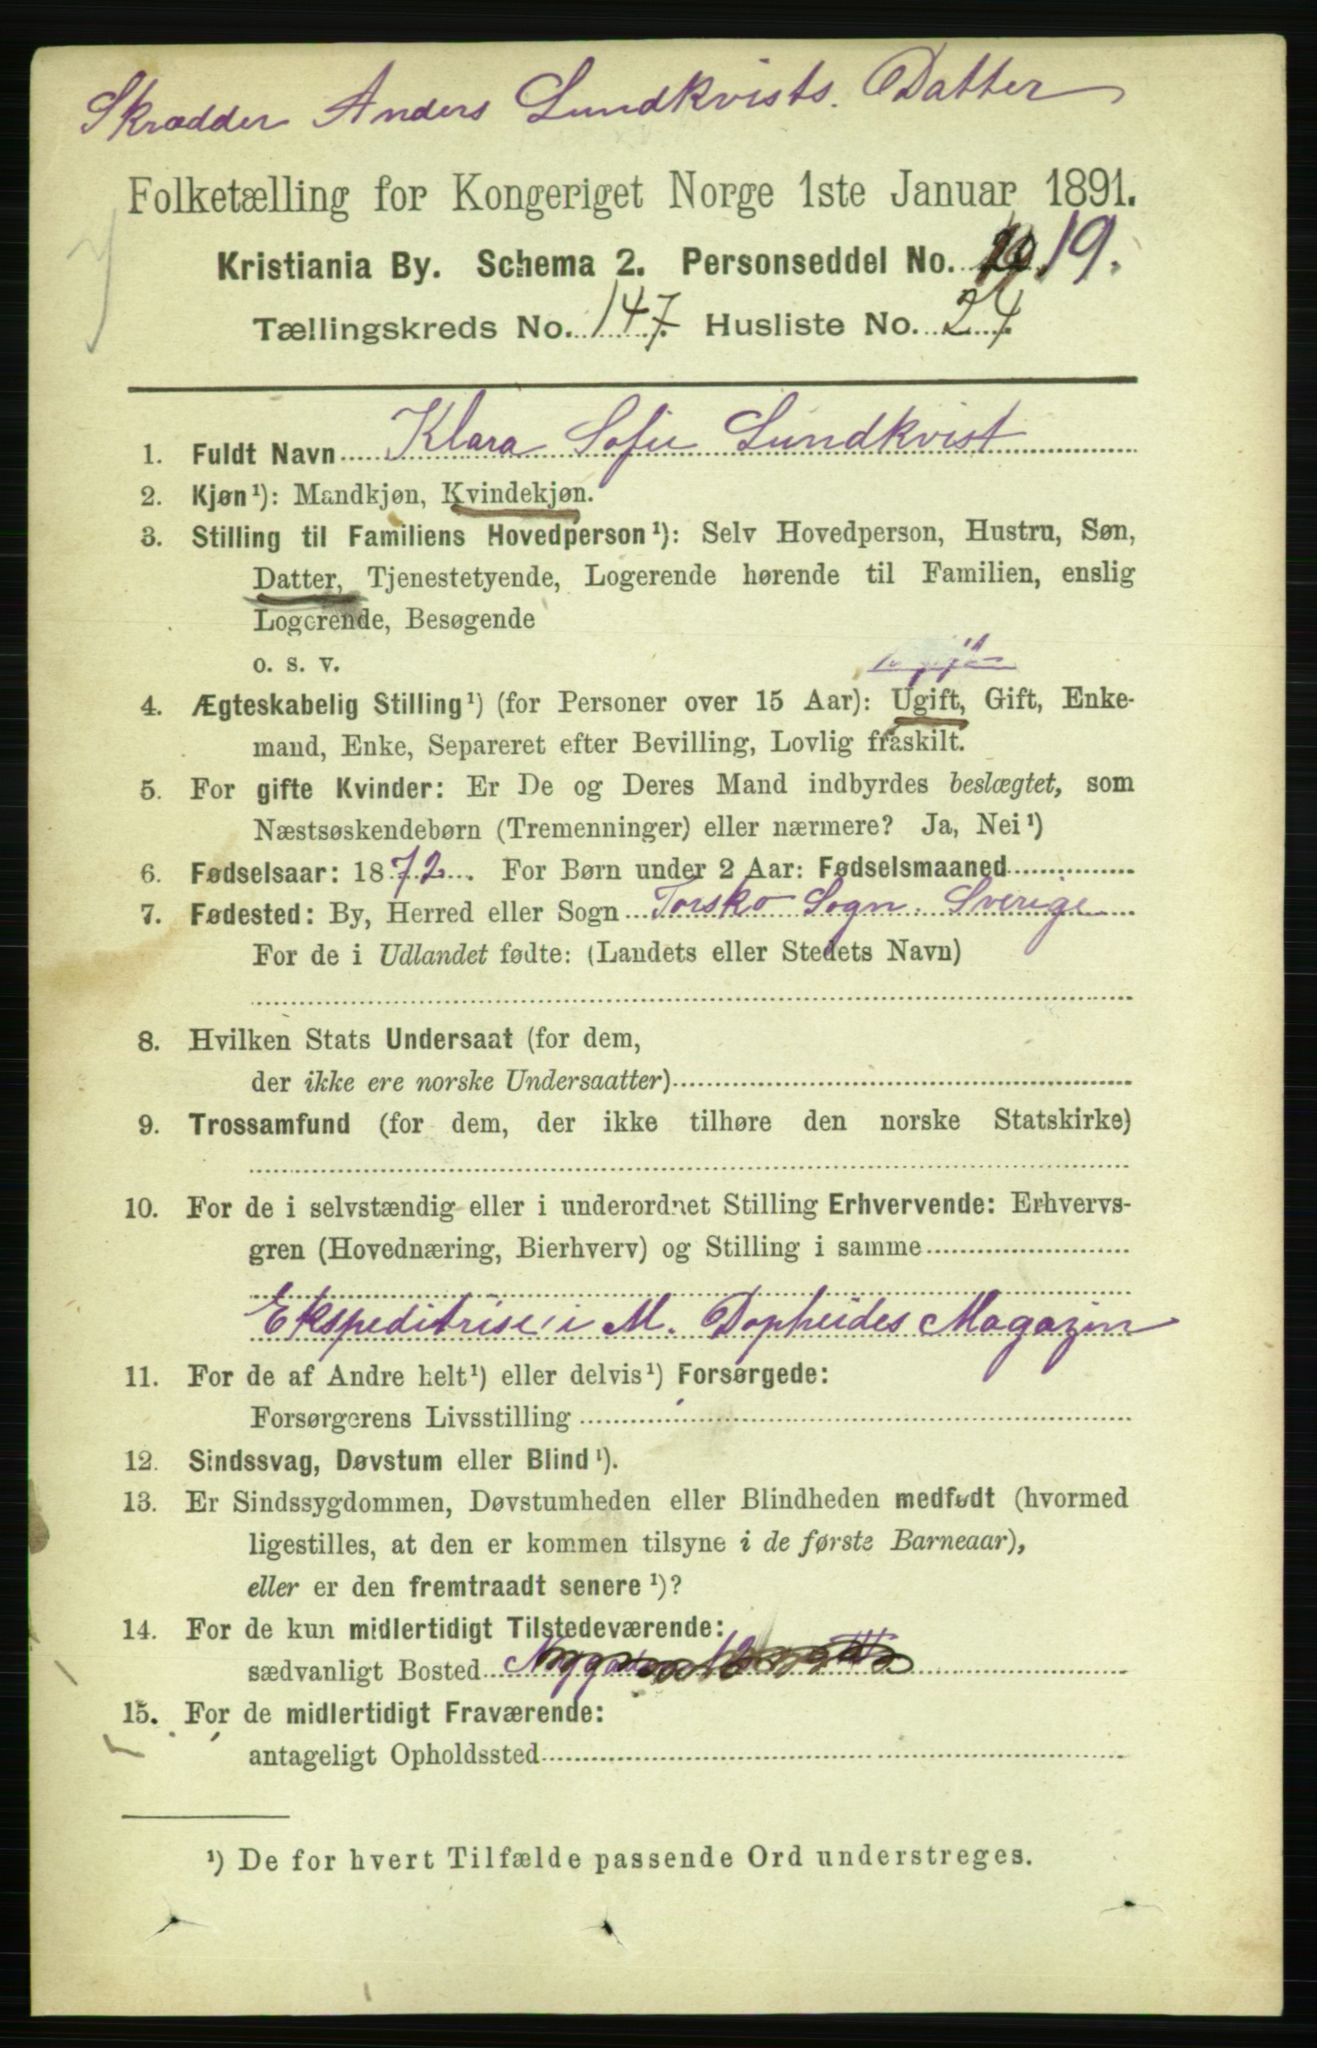 Skrædder Anders Lundkvists. Datter
Folketælling for Kongeriget Norge 1ste Januar 1891.
Kristiania By. Schema 2. Personseddel No. 19.
Tællingskreds No. 147. Husliste No. 24.
1. Fuldt Navn Klara Sofie Lundkvist
2. Kjøn¹): Mandkjøn, Kvindekjøn.
3. Stilling til Familiens Hovedperson¹): Selv Hovedperson, Hustru, Søn,
Datter, Tjenestetyende, Logerende hørende til Familien, enslig
Logerende, Besøgende
o. s. v.
4. Ægteskabelig Stilling¹) (for Personer over 15 Aar): Ugift, Gift, Enke-
mand, Enke, Separeret efter Bevilling, Lovlig fraskilt.
5. For gifte Kvinder: Er De og Deres Mand indbyrdes beslægtet, som
Næstsøskendebørn (Tremenninger) eller nærmere? Ja, Nei¹)
6. Fødselsaar: 1872. For Børn under 2 Aar: Fødselsmaaned
7. Fødested: By, Herred eller Sogn Torsko Sogn. Sverige
For de i Udlandet fødte: (Landets eller Stedets Navn)
8. Hvilken Stats Undersaat (for dem,
der ikke ere norske Undersaatter)
9. Trossamfund (for dem, der ikke tilhøre den norske Statskirke)
10. For de i selvstændig eller i underordnet Stilling Erhvervende: Erhvervs-
gren (Hovednæring, Bierhverv) og Stilling i samme
Ekspeditrise i M. Dopheides Magazin
11. For de af Andre helt¹) eller delvis¹) Forsørgede:
Forsørgerens Livsstilling
12. Sindssvag, Døvstum eller Blind¹).
13. Er Sindssygdommen, Døvstumheden eller Blindheden medfødt (hvormed
ligestilles, at den er kommen tilsyne i de første Barneaar),
eller er den fremtraadt senere¹)?
14. For de kun midlertidigt Tilstedeværende:
sædvanligt Bosted
15. For de midlertidigt Fraværende:
antageligt Opholdssted
¹) De for hvert Tilfælde passende Ord understreges.